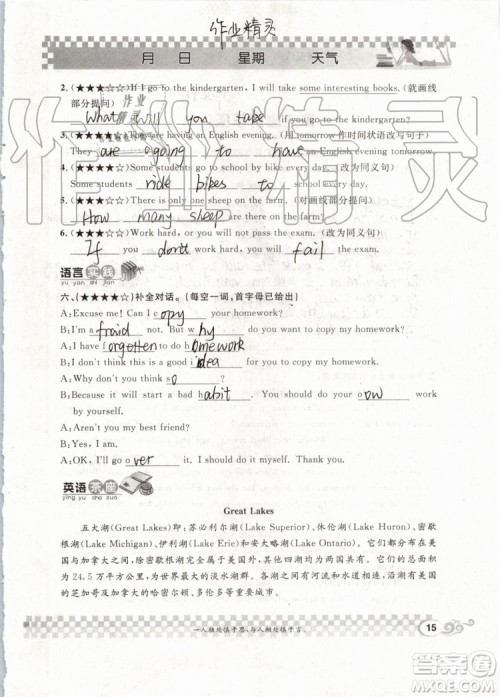 作业精灵
月 日 星期 天气
2. (★★★★☆)If I go to the kindergarten, I will take some interesting books. (就画线
部分提问)
What will you take if you go to the kindergarten?
3. (★★★★☆)They are having an English evening. (用 tomorrow 作时间状语改写句子)
They are going to have an English evening tomorrow.
4. (★★★★☆)Some students go to school by bike every day. (改为同义句)
Some students ride bikes to school every day.
5. (★★★☆☆)There is only one sheep on the farm. (对画线部分提问)
How many sheep are there on the farm?
6. (★★★★☆)Work hard, or you will not pass the exam. (改为同义句)
If you don't work hard, you will fail the exam.
语言实践
yu yan shi jian
六、(★★★★☆)补全对话。(每空一词,首字母已给出)
A:Excuse me! Can I copy your homework?
B:I'm afraid not. But why?
A:I have forgotten to do my homework
B:I don't think this is a good idea to copy my homework.
A:Why don't you think so?
B:Because it will start a bad habit. You should do your own work
by yourself.
A:
B:Yes, I am.
A:OK, I'll go over it. I should do it myself. Thank you.
英语茶座
ying yu cha zuo
Great Lakes
五大湖(Great Lakes)即:苏必利尔湖(Lake Superior)、休伦湖(Lake Huron)、密歇
根湖(Lake Michigan)、伊利湖(Lake Erie)和安大略湖(Lake Ontario)。除了密歇根湖
全属于美国外,其他四湖均为美国与加拿大共有。五大湖的总面积约为
24.5 万平方公里,为世界最大的淡水湖群。五大湖沿岸的主要城市有美国
的芝加哥及加拿大的多伦多等。
一人独处慎于思,与人相处慎于言。
15